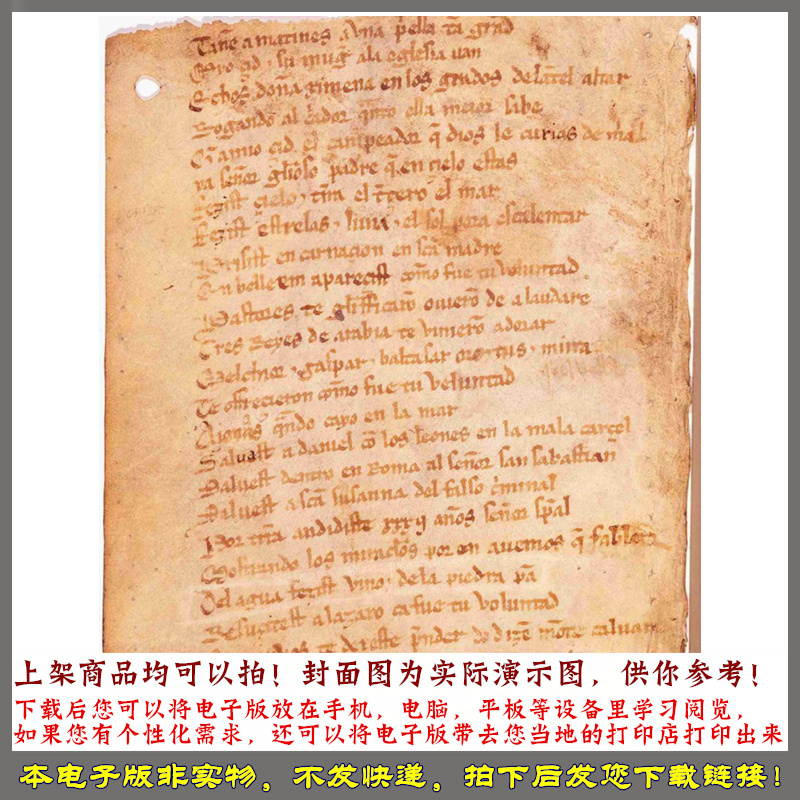 Tanē a matines a vna p̄ella tā grad
Myo çid ⁊ su mug̃ ala eglesia uan
Echos doña ximena en los grados delātel altar
Rogando al c̄ador q̄nto ella meior sabe
Q̄ a myo çid el cāpeador q̄ dios le curias de mal
ya señor gl̄ioso padre q̄ en cielo estas
Fezist çielo ⁊ t̄ra el t̄çero el mar
Fezist estrelas ⁊ luna ⁊ el sol pora escalentar
Prisist en carnaçion en sc̄a madre
En belleem apareçist com̄o fue tu voluntad
Pastores te gl̄ifficarō ouierō de a laudare
Tres Reyes de arabia te vinierō adorar
Melchior ⁊ gaspar ⁊ baltasar oro ⁊ tus ⁊ mirra
Te offreçieron com̄o fue tu veluntad
A ionas q̄ndo cayo en la mar
Saluest a daniel cō los leones en la mala carçel
Saluest dentro en Roma al señor san sabastian
Saluest a sc̄a susanna del falso c̄minal
Por t̄ra andidiste xxxij años señor sp̄al
Mostrando los miraclos por en auemos q̄ fablar
Del agua fezist vino ⁊ dela piedra pā
Resuçitest a lazaro ca fue tu voluntad
te dexeste p̄nder do dizē mōte caluari
上架商品均可以拍！封面图为实际演示图，供你参考！
下载后您可以将电子版放在手机，电脑，平板等设备里学习阅览，
如果您有个性化需求，还可以将电子版带去您当地的打印店打印出来
本电子版非实物，不发快递，拍下后发您下载链接！